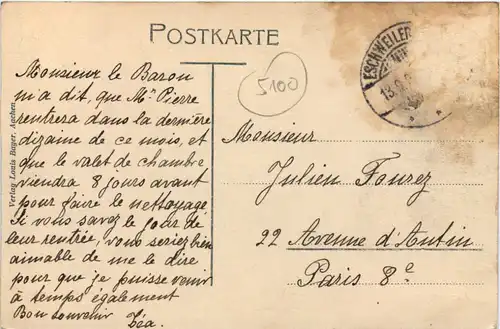 POSTKARTE
Monsieur le Baron
m'a dit, que Mr Pierre
rentrera dans la dernière
dizaine de ce mois, et
que le valet de chambre
viendra 8 jours avant
pour faire le nettoyage
Si vous savez le jour de
leur rentrée, vous seriez bien
aimable de me le dire
pour que je puisse venir
à temps également
Bon souvenir
Léa.
Verlag Louis Bayer, Aachen.
5100
ESCHWEILER
Monsieur
Julien Fourez
22 Avenue d'Antin
Paris 8e